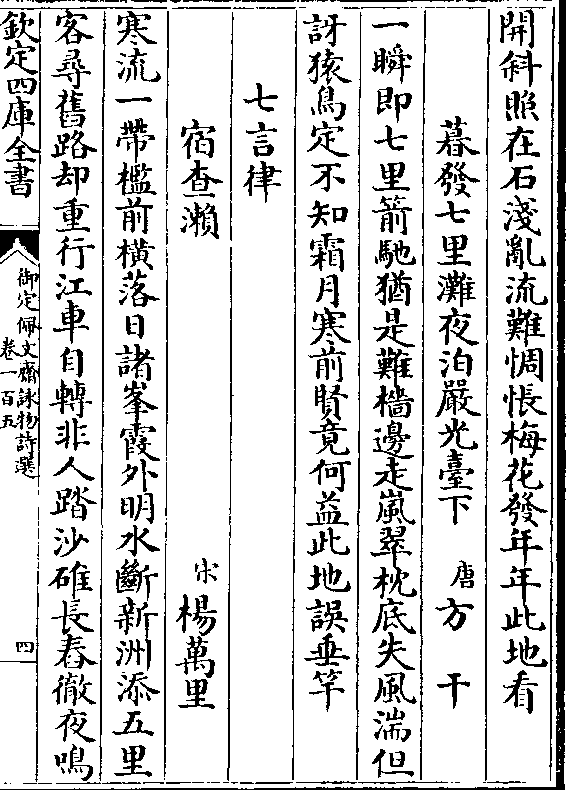 開斜照在石淺亂流難惆悵梅花發年年此地看
暮發七里灘夜泊嚴光臺下 唐 方 干
一瞬即七里箭馳猶是難檣邊走嵐翠枕底失風湍但
訝猿鳥定不知霜月寒前賢竟何益此地誤垂竿
七言律
宿查瀨 宋 楊萬里
寒流一帶檻前橫落日諸峯霞外明水斷新洲添五里
客尋舊路却重行江車自轉非人踏沙碓長舂徹夜鳴
欽定四庫全書
御定佩文齋詠物詩選
卷一百五
四